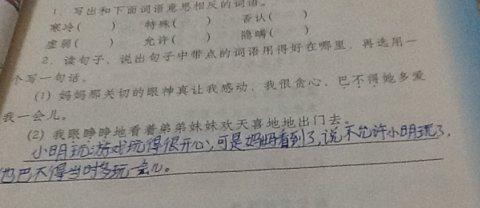 1. 写出和下面词语意思相反的词语。
寒冷( ) 特殊( ) 否认( )
虚弱( ) 允许( ) 隐瞒( )
2. 读句子，说出句子中带点的词语用得好在哪里，再选用一
个写一句话。
(1) 妈妈那关切的眼神真让我感动，我很贪心，巴不得她多爱
我一会儿。
(2) 我眼睁睁地看着弟弟妹妹欢天喜地地出门去。
小明玩游戏玩得很开心，可是妈妈看到了，说不允许小明玩了，
他巴不得当时多玩一会儿。